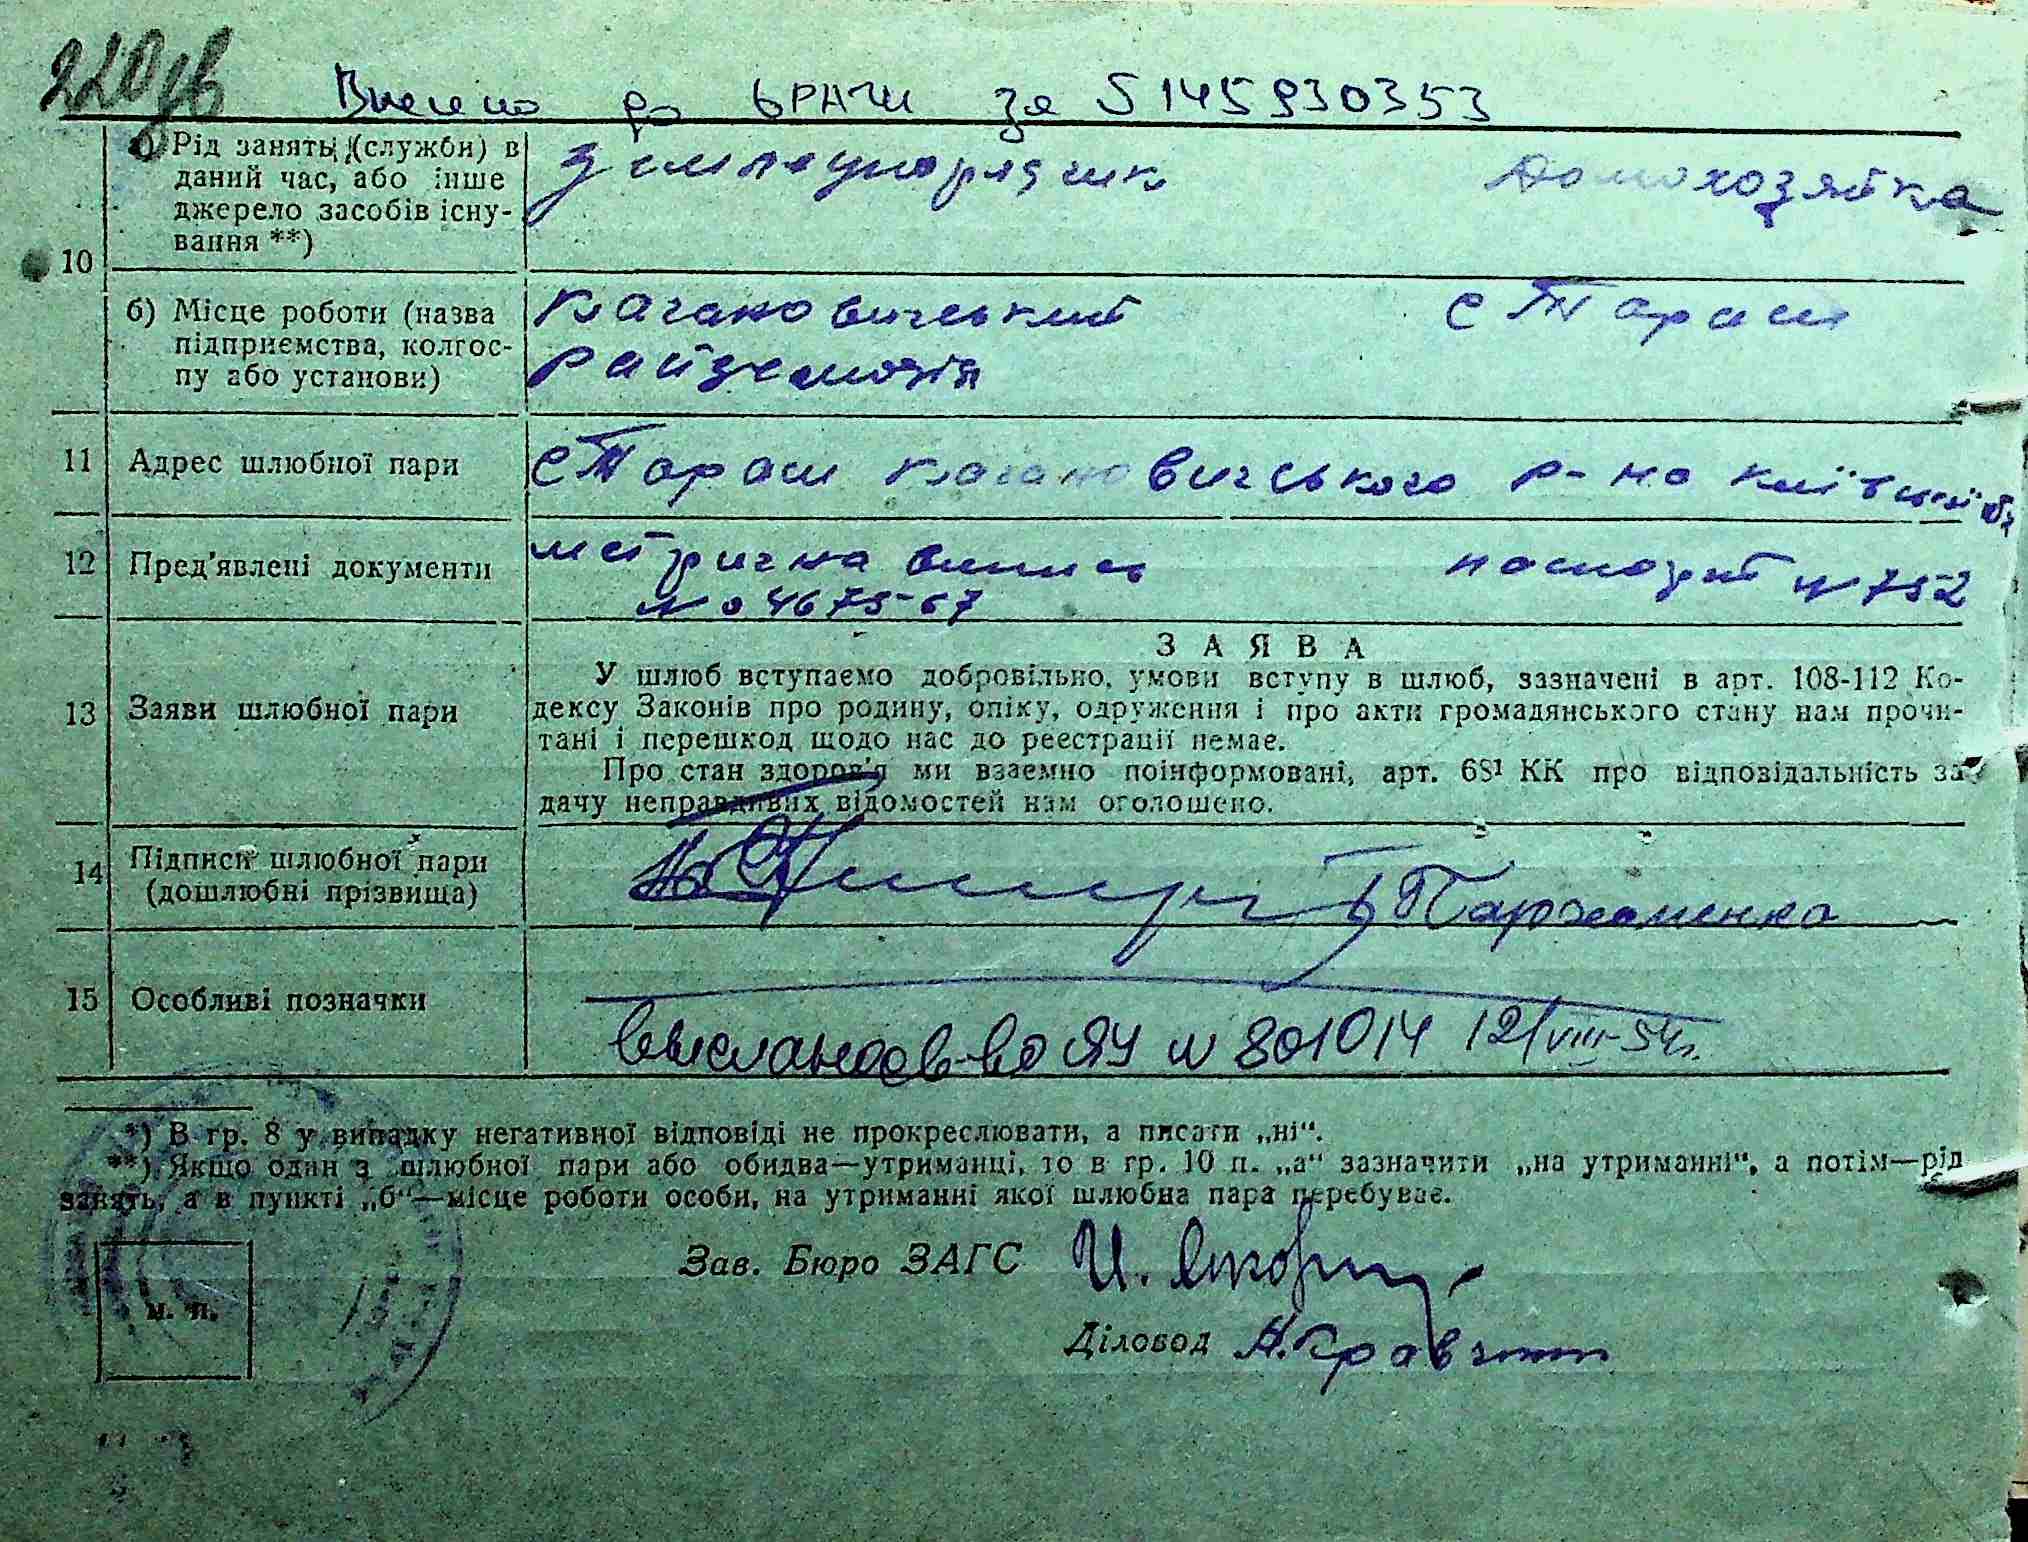 220 зв
Внесено до ДРАЦС за S 145930353
а) Рід занять (служби) в
даний час, або інше
джерело засобів існу-
вання **)
Землеупорядчик Домохозяйка
10
б) Місце роботи (назва
підприємства, колгос-
пу або установи)
Кагановицький с Тараси
райземвідділ
11 Адрес шлюбної пари с Тараси Кагановицького р-на Київської обл
12 Пред'явлені документи метрична випись паспорт № 752
№ 04675-67
З А Я В А
13 Заяви шлюбної пари
У шлюб вступаємо добровільно, умови вступу в шлюб, зазначені в арт. 108-112 Ко-
дексу Законів про родину, опіку, одруження і про акти громадянського стану нам прочи-
тані і перешкод щодо нас до реєстрації немає.
Про стан здоров'я ми взаємно поінформовані, арт. 68¹ КК про відповідальність за
дачу неправдивих відомостей нам оголошено.
14 Підписи шлюбної пари
(дошлюбні прізвища)
Пархоменко
15 Особливі позначки
выслано св-во ЯУ № 801014 12/VIII-54г.
*) В гр. 8 у випадку негативної відповіді не прокреслювати, а писати „ні“.
**) Якщо один з шлюбної пари або обидва—утриманці, то в гр. 10 п. „а“ зазначити „на утриманні“, а потім—рід
занять, а в пункті „б“—місце роботи особи, на утриманні якої шлюбна пара перебуває.
Зав. Бюро ЗАГС
м. п.
Діловод